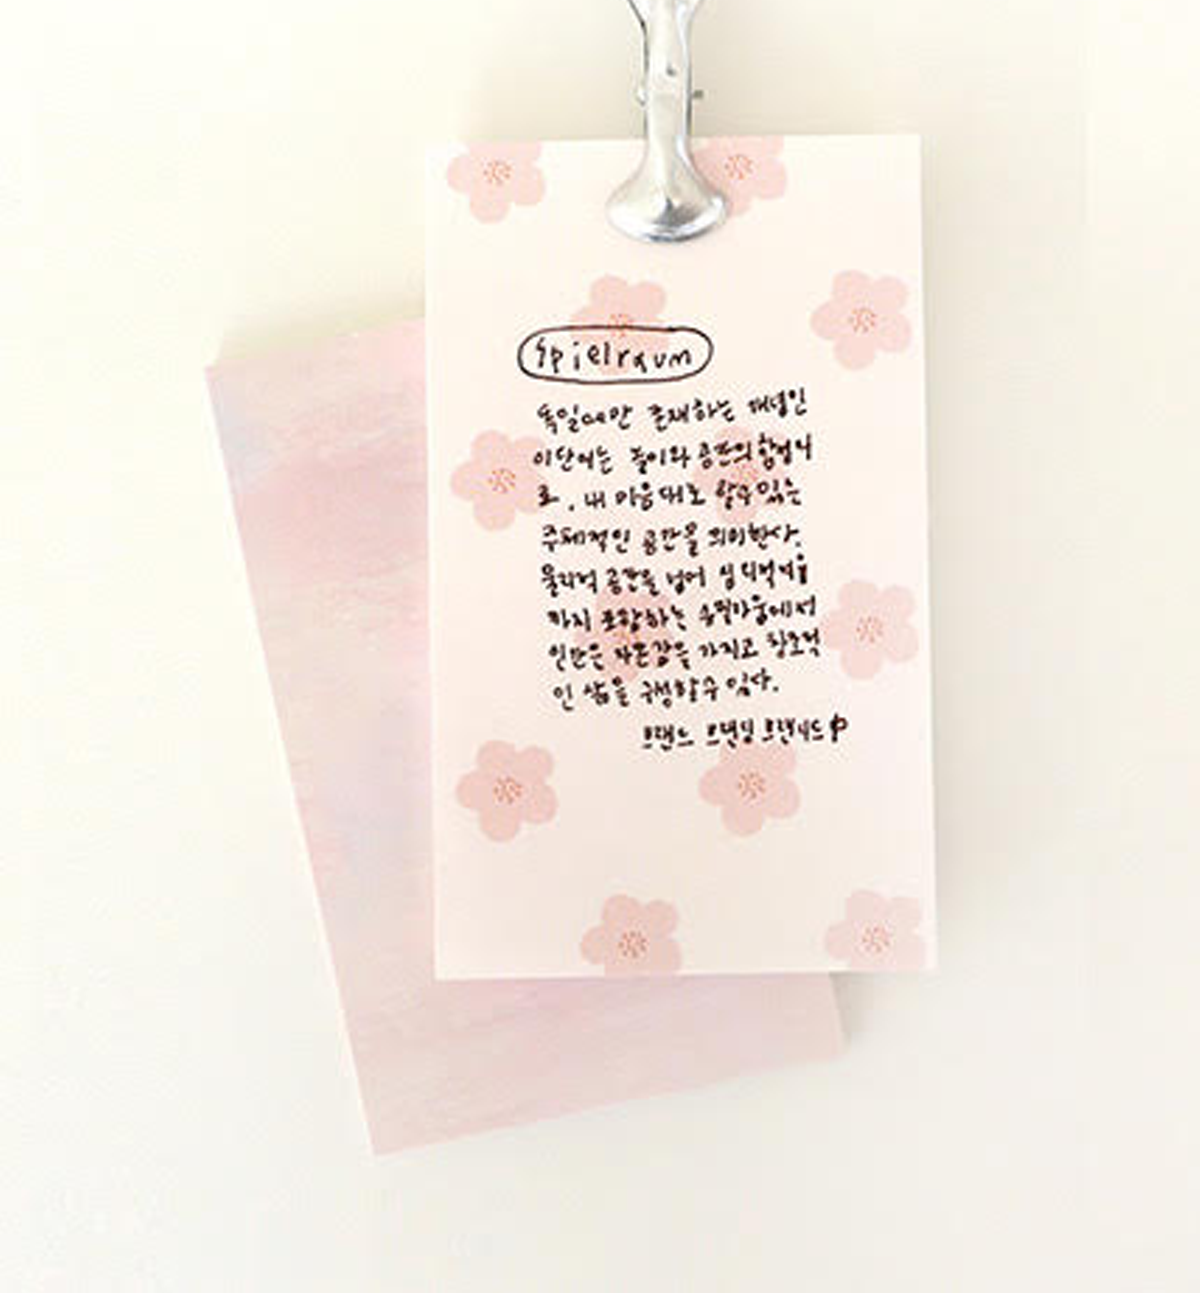 Spielraum
독일에만 존재하는 개념인
이 단어는 놀이와 공간의 합성어
로, 내 마음대로 할 수 있는
주체적인 공간을 의미한다.
물리적 공간을 넘어 심리적 여유
까지 포함하는 슈필라움에서
인간은 자존감을 가지고 창조적
인 삶을 구성할 수 있다.
브랜드 브랜딩 브랜디드 中